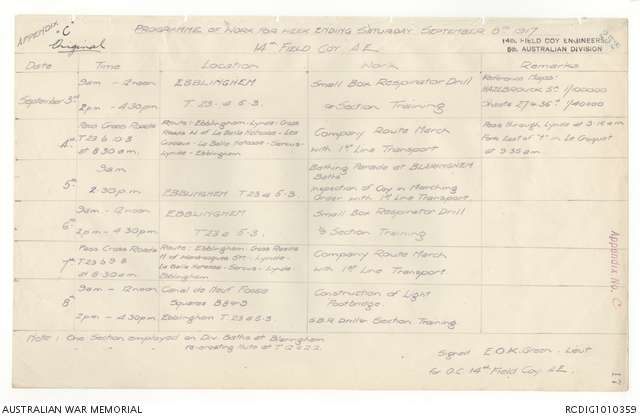 APPENDIX "C"
Original
PROGRAMME OF WORK FOR WEEK ENDING SATURDAY SEPTEMBER 8TH 1917
14TH FIELD COY A.E.
14th FIELD COY ENGINEERS
5th AUSTRALIAN DIVISION
Date Time Location Work Remarks
September 3rd 9am - 12 noon EBBLINGHEM Small Box Respirator Drill
2pm - 4.30pm T.23.a.5.3. & Section Training
Reference Maps:
HAZEBROUCK 5A 1/100000
Sheets 27 & 36A 1/40000
4th Pass Cross Roads
T.23.b.0.3
at 8.30 am.
Route: Ebblinghem - Lynde: Cross
Roads N of La Belle Hotesse - Les
- La Belle Hotesse - Sercus -
Lynde - Ebblinghem.
Company Route March
with 1st Line Transport
Pass through Lynde at 9.15 am
Fork East of "T" in Le Croquet
at 9.35 am
5th 9am Bathing Parade at BLARINGHEM
Baths
2.30pm EBBLINGHEM T.23.a.5.3. Inspection of Coy in Marching
Order with 1st Line Transport
6th 9am - 12 noon EBBLINGHEM Small Box Respirator Drill
2pm - 4.30pm T.23.a.5.3. & Section Training
7th Pass Cross Roads
at 8.30 am
Route: Ebblinghem - Cross Roads
N of - Lynde -
La Belle Hotesse - Sercus - Lynde
Ebblinghem
Company Route March
with 1st Line Transport.
8th 9am - 12 noon Canal de Neuf Fosse
Squares
Construction of Light
Footbridge.
2pm - 4.30pm Ebblinghem T.23.a.5.3. S.B.R. Drill & Section Training.
Note: One Section employed on Div. Baths at Blaringhem
re-erecting Huts at
Signed E.O.K. Green. Lieut
for O.C. 14th Field Coy A.E.
Appendix No. C
17
AUSTRALIAN WAR MEMORIAL
RCDIG1010359